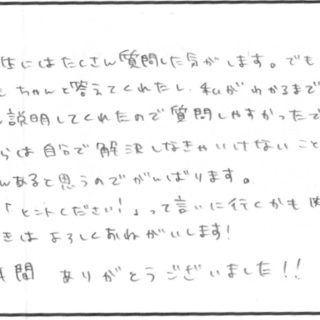 生にはたくさん質問した気がします。でも
ちゃんと答えてくれたし、私がわかるまで
説明してくれたので質問しやすかったで
らは自分で解決しなきゃいけないこと
んあると思うのでがんばります。
「ヒントください！」って言いに行くかも
きはよろしくおねがいします！
年間 ありがとうございました！！